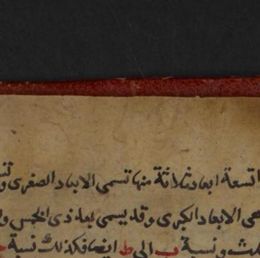 تسعة ابعاد ثلاثة منها تسمى الابعاد الصغرى
الابعاد الكبرى وقد يسمى بعد ذى الخمس
ونسبة ب الى ط ايضا فكذلك نسبة